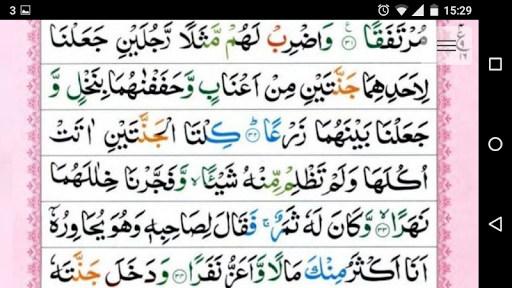 3 15:29
مُرْتَفَقًا ۝٣١ وَاضْرِبْ لَهُمْ مَّثَلًا رَّجُلَيْنِ جَعَلْنَا
لِاَحَدِهِمَا جَنَّتَيْنِ مِنْ اَعْنَابٍ وَّحَفَفْنٰهُمَا بِنَخْلٍ وَّ
جَعَلْنَا بَيْنَهُمَا زَرْعًا ۝٣٢ كِلْتَا الْجَنَّتَيْنِ اٰتَتْ
اُكُلَهَا وَلَمْ تَظْلِمْ مِّنْهُ شَيْـًٔا وَّفَجَّرْنَا خِلٰلَهُمَا
نَهَرًا ۝٣٣ وَّكَانَ لَهٗ ثَمَرٌ فَقَالَ لِصَاحِبِهٖ وَهُوَ يُحَاوِرُهٗۤ
اَنَا اَكْثَرُ مِنْكَ مَالًا وَّاَعَزُّ نَفَرًا ۝٣٤ وَدَخَلَ جَنَّتَهٗ